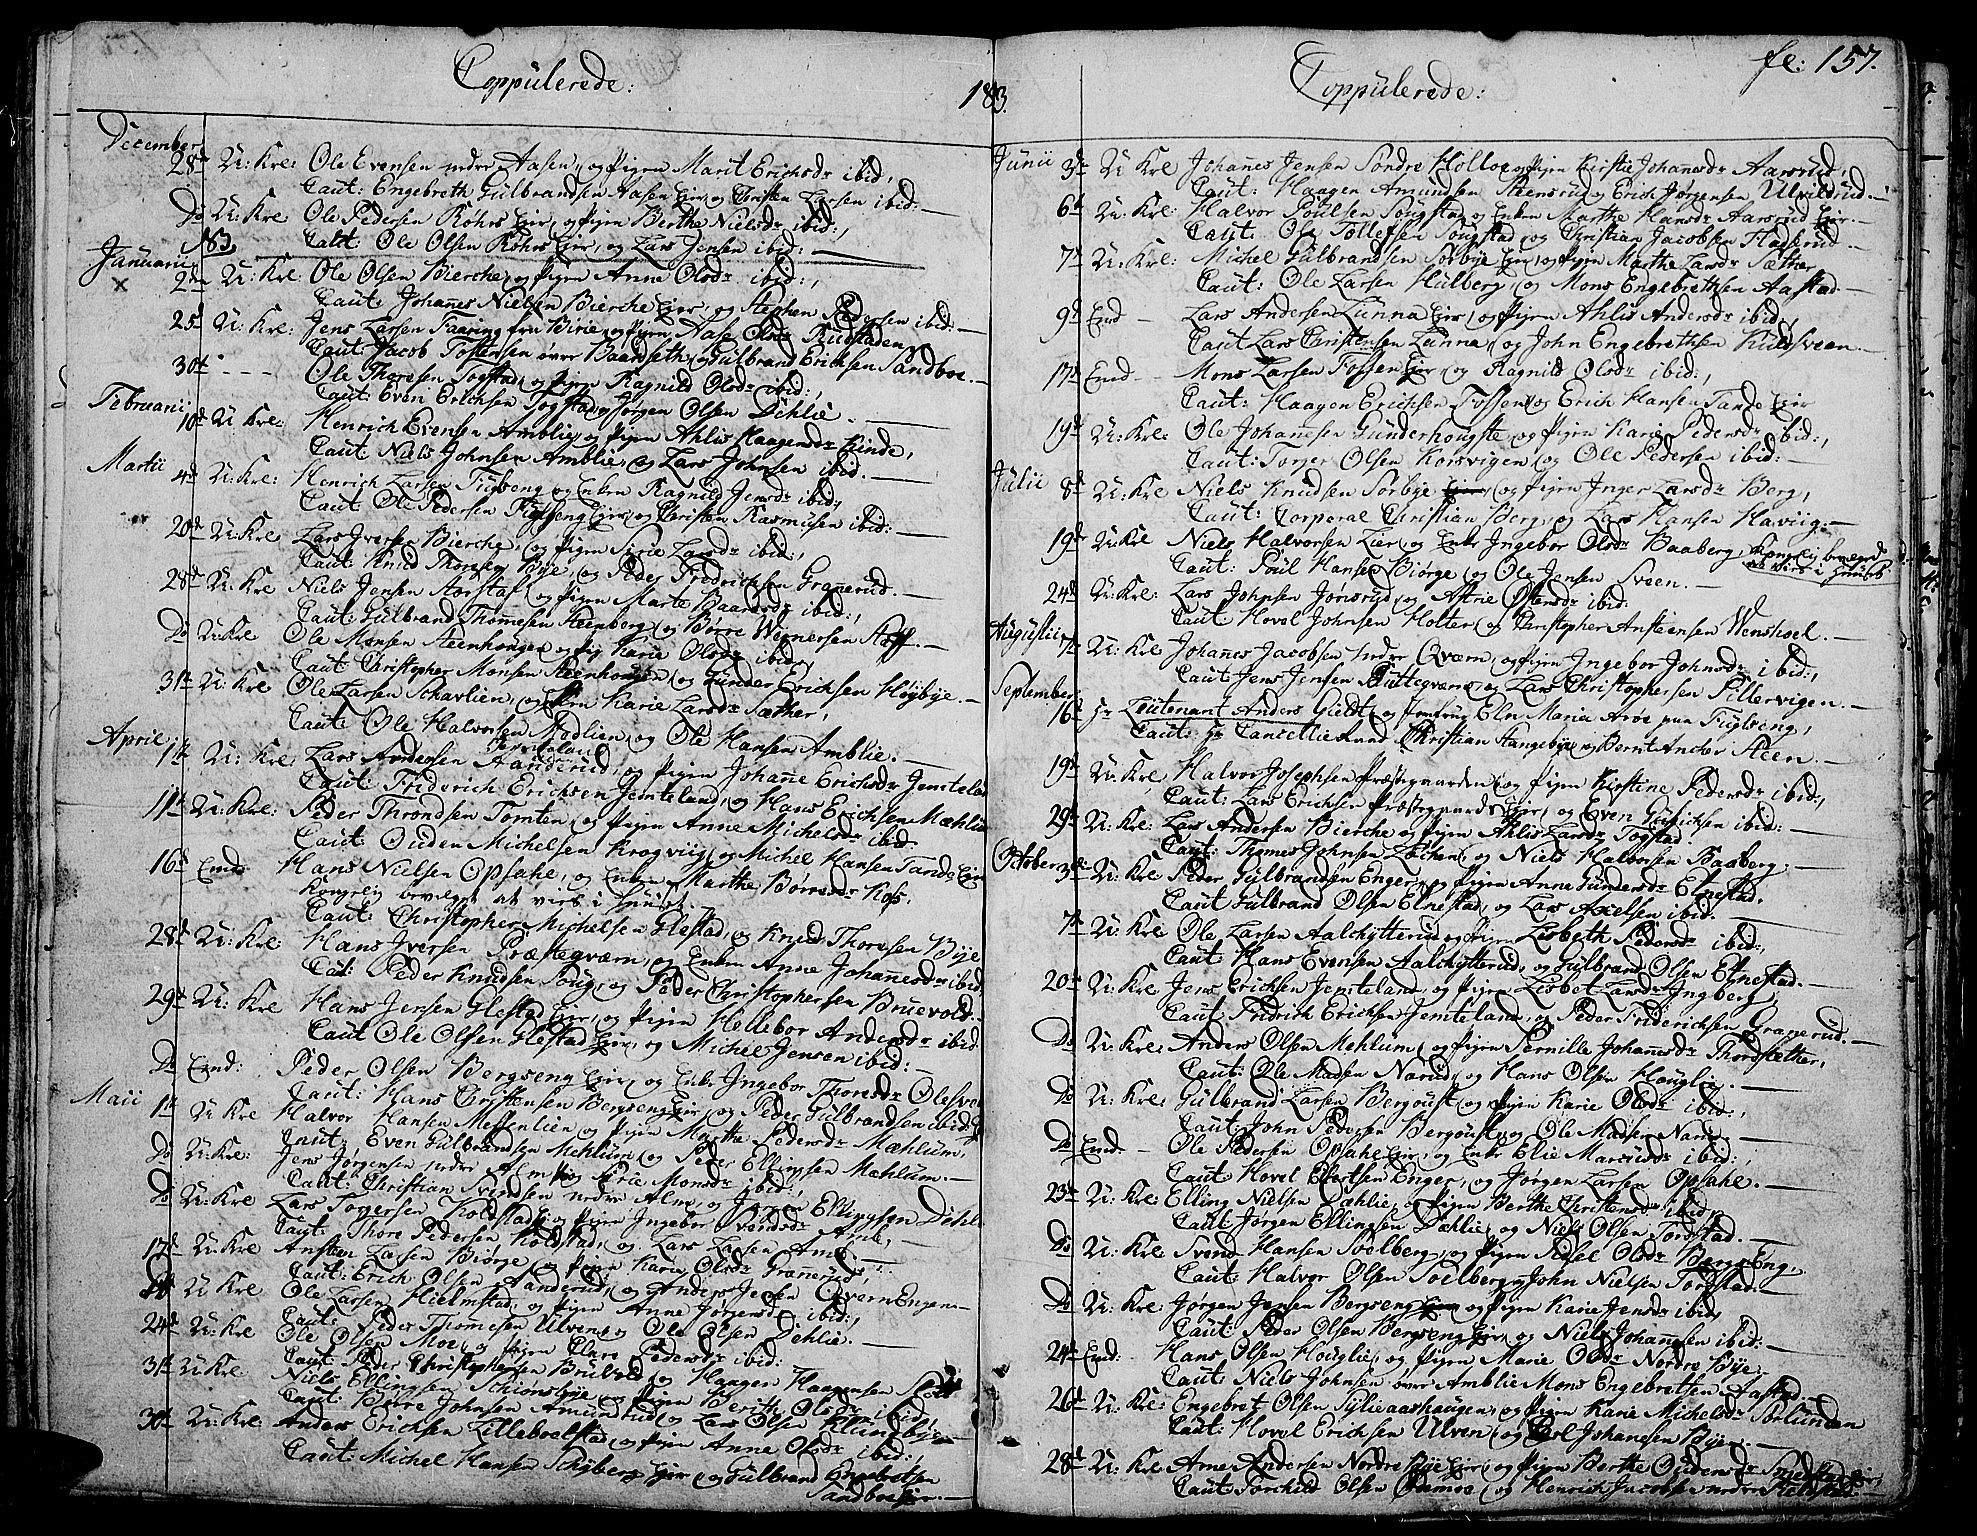 Coppulerede:
183
December
28de U: Kre: Ole Evensen nedre Aasen, og Pigen Marit Erichsdr ibid,
Caut: Engebreth Gulbrandsen Aasen Eier, og Christen Larsen ibid:
Do U: Kre Ole Pedersen Röhrs Eier, og Pigen Berthe Nielsdr ibid:,
Caut: Ole Olsen Röhrs Eier, og Lars Jensen ibid:
Januarii
2den U: Kre Ole Olsen Bierche, og Pigen Anne Olsdr ibid:,
Caut: Johanes Nielsen Bierche Eier, og Stephen Pedersen ibid:
25de U: Kre: Jens Larsen Faaring fra Birie, og Pigen Aase Olsdr Rudstaden
Caut: Jacob Tostensen över Baardseth, og Gulbrand Erichsen Sandboe.
30te Ole Thoresen Togstad, og Pigen Ragnild Olsdr ibid:,
Caut: Even Erichsen Togstad, og Jörgen Olsen Dehlie.
Februarii
10de U Kre: Henrich Evensen Amblie, og Pigen Ahlis Haagensdr Kinde,
Caut: Niels Johnsen Amblie, og Lars Johnsen ibid.
Martii
4de U: Kre: Henrich Larsen Fuglseng, og Enken Ragnild Jensdr ibid:,
Caut Ole Pedersen Fuglseng Eier, og Christen Rasmusen ibid:
20de U: Kre Lars Iversen Bierche, og Pigen Sirie Larsdr ibid:,
Caut: Knud Thoresen Bye, og Peder Fredrichsen Granerud.
28de U: Kre Niels Jensen Aarstaf, og Pigen Marte Baardsdr ibid:,
Caut: Gulbrand Thomesen Steenberg, og Börre Wernersen Hoff.
Do U: Kre Ole Monsen Steenhougen, og Pig Karie Olsdr ibid,
Caut Christopher Monsen Steenhougen, og Gunder Erichsen Höybye.
31te U: Kre Ole Larsen Schavlien, og Karie Larsdr Sæther,
Caut: Ole Halvorsen Modlien, og Ole Hansen Amblie.
April
1te U: Kre: Lars Andersen Aanderud, og Pigen Johane Erichsdr Jemteland
Caut: Friderich Erichsen Jemteland, og Hans Erichsen Mæhlum
11te U: Kre: Peder Throndsen Tomten, og Pigen Anne Michelsdr ibid.
Caut: Ouden Michelsen Krogviig, og Michel Hansen Tande Eier
16de Emd Hans Nielsen Opsahe, og Enken Marthe Börresdr Kiös,
Kongelig bevilget at vies i Huuset.
Caut: Christopher Michelsen Glestad, og Knud Thoresen Bye
28de U: Kre: Hans Iversen Præsteqværn, og Enken Anne Johanesdr ibid,
Caut: Peder Knudsen Soug, og Peder Christophersen Bruevold.
29de U: Kre Hans Jensen Glestad Eier, og Pigen Hellebor Andersdr ibid
Caut Ole Olsen Glestad Eier, og Michel Jensen ibid:
Do Emd: Peder Olsen Bergseng Eier, og Enke Ingebor Thoresdr
Caut: Hans Christensen Bergseng Eier, og Peder Gulbrandsen ibid:
Maii
1te U Kre Halvor Hansen Messenlien, og Pigen Marthe Pedersdr
Caut: Even Gulbrandsen Mehlum, og Peder Ellingsen Mæhlum.
Do U: Kre: Jens Jörgensen nedre Alm, og Sirie Monsdr ibid:,
Caut: Christian Svendsen nedre Alm, og Jörgen Ellingsen Dehli
Do U: Kre Lars Torgersen Koldstad, og Pigen Ingebor Svendsdr
Caut: Thore Pedersen Koldstad, og Lars Larsen Alm.
17de U: Kre Ansten Larsen Biörge, og Pigen Karie Olsdr Granerud,
Caut: Erich Olsen Aanderud, og Anders Jensen Qvern Engen
U Kre Ole Larsen Hielmstad, og Pigen Anne Jörgensdr ibid:,
Caut: Peder Thomesen Ulven, og Ole Olsen Dehlie.
24de U: Kre Ole Olsen Moe, og Pigen Clare Pedersdr ibid:
Caut: Peder Christophersen Bruvold, og Haagen Haagensen
31te U Kre Niels Ellingsen og Pigen Berith Olsdr ibid,
Caut: Börre Johnsen Amundrud, og Lars Olsen Ellingbye.
30te U: Kre: Anders Erichsen Lilleboelstad, og Pigen Anne Olsdr ibid:,
Caut: Michel Hansen Schyberg Eier, og Gulbrand Engebretsen
Sandboe Eier.
Coppulerede:
fl: 157.
Junii
3de U Kre Johanes Jensen Söndre Holloe, og Pigen Kirstie Johanesdr Aarsrud,
Caut: Haagen Amundsen Steensrud, og Erich Jörgensen Ulvildrud.
6te U: Kre: Halvor Poulsen Sougstad, og Enken Marthe Hansdr Aarsrud Eier.
Caut Ole Tollefsen Sougstad, og Christian Jacobsen Fladsrud.
7de U: Kre: Michel Gulbrandsen Sörbye Eier, og Pigen Marthe Larsdr Sæther
Caut: Ole Larsen Hulberg, og Mons Engebrethsen Aastad
9de Emd Lars Andersen Lunna Eier, og Pigen Ahlis Andersdr ibid:,
Caut Lars Christensen Lunna, og John Engebrethsen Kulssveen.
17de Emd Mons Larsen Fossen Eier, og Ragnild Olsdr ibid:,
Caut: Haagen Erichsen Fossen, og Erich Hansen Tande Eier
19de U: Kre: Ole Johanesen Gunderhougste, og Pigen Karie Pedersdr ibid:,
Caut: Torger Olsen Korsvigen, og Ole Pedersen ibid:
Julii
8de U: Kre Niels Knudsen Sörbye Eier, og Pigen Inger Larsdr Berg,
Caut: Corporal Christian Berg, og Lars Hansen Haviig.
19de U: Kre Niels Halvorsen Lier, og Enke Ingebor Olsdr Baaberg, Kongelig bevilget
at vies i Huuset
Caut: Poul Hansen Biörge, og Ole Jensen Sveen.
24de U: Kre: Lars Johnsen Jonsrud, og Astrie Olsensdr ibid:
Caut: Hovel Johnsen Holter, og Christopher Anstensen Wenshoel.
Augustii
7de U: Kre Johanes Jacobsen nedre Qværn, og Pigen Ingebor Johnsdr ibid:,
Caut Jens Jensen Putteqværn, og Lars Christophersen Tillervigen.
September
16de Hr Lieutenant Anders Gieldt, og Jomfrue Eln Maria Aröe paa Fuglseng,
Caut: Hr Cancellieraad Christian Stangebye, og Bernt Ancher Steen.
19de U: Kre Halvor Josephsen Præstegaarden, og Pigen Kirstine Pedersdr ibid:,
Caut: Lars Erichsen Præstegaards Eier, og Even Gudichsen ibid:
29de U: Kre: Lars Andersen Bierche, og Pigen Ahlis Larsdr Togstad.
Caut: Thomes Johnsen Lochen, og Niels Halvorsen Baaberg.
October
3de U: Kre Peder Gulbrandsen Enger, og Pigen Anne Gundersdr Elnestad.
Caut Gulbrand Olsen Elnestad, og Lars Axelsen ibid.
7de U: Kre Ole Larsen Aalchytterud, og Pigen Lisbeth Pedersdr ibid:,
Caut: Hans Evensen Aalchytterud, og Gulbrand Olsen Elnestad.
20de U: Kre Jens Erichsen Jemteland, og Pigen Lisbet Larsdr Ingberg,
Caut Fridrich Erichsen Jemteland, og Peder Friderichsen Granerud.
Do U: Kre: Anders Olsen Mehlum, og Pigen Pernille Johanesdr Thordsæther,
Caut: Ole Madsen Narud, og Hans Olsen Houglie.
Do U: Kre: Gulbrand Larsen Bergoust, og Pigen Karie Olsdr ibid:,
Caut: John Pedersen Bergoust, og Ole Madsen Narud.
Do Emd. Ole Pedersen Opsahe Eier, og Enke Elie Marcusdr ibid:,
Caut: Hovel Evertsen Enger, og Jörgen Larsen Opsahe.
23de U: Kre Elling Nielsen Dæhlie, og Pigen Berthe Christensdr ibid,
Caut Jörgen Ellingsen Dæhlie, og Niels Olsen Tordstad.
Do U: Kre: Svend Hansen Soelberg, og Pigen Sidsel Olsdr Bergs Eng,
Caut: Halvor Olsen Soelberg, og John Nielsen Tordstad.
Do U: Kre: Jörgen Jensen Bergseng Eier, og Pigen Karie Jensdr ibid,
Caut: Peder Olsen Bergseng Eier, og Niels Johansen ibid:
24de Emd: Hans Olsen Houglie, og Pigen Marie Olsdr Nordre Bye.
Caut: Niels Johnsen över Amblie Mons Engebretsen Aastad.
26de U: Kre: Engebret Olsen Sylieaashaugen, og Pigen Karie Michelsdr Sörlunden
Caut: Hovel Erichsen Ulven, og Carl Johanesen Bye.
28de U: Kre: Arne Andersen Nordre Bye Eier, og Pigen Berthe Oudensdr Smedstad Eier,
Caut: Torchild Olsen og Henrich Jacobsen nedre Koldstad.